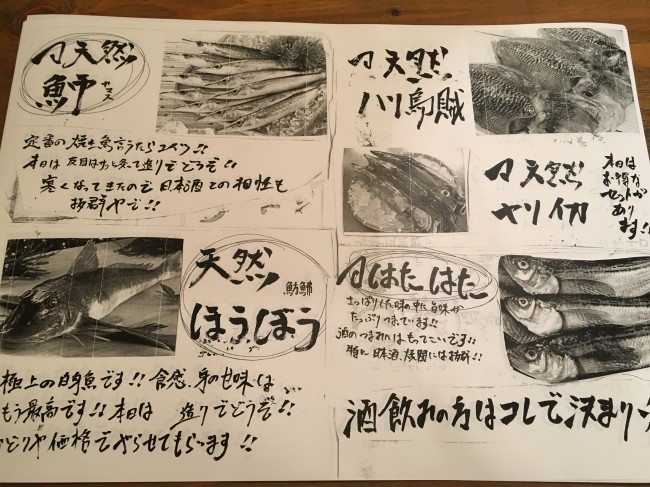 天然
魳 カマス
定番の焼き魚言うたらコイツ!!
本日は
造りでどうぞ!!
寒くなってきたので日本酒との相性も
抜群やで!!
天然
ハリ烏賊
天然
ヤリイカ
本日は
お得な
セットが
あり
ます!!
天然
ほうぼう
魴鮄
極上の白身魚です!! 食感、身の甘味は
もう最高です!! 本日は 造りでどうぞ!!
価格でやらせてもらいます!!
はたはた
さっぱりした味の中に旨味が
たっぷりつまっています!!
酒のつまみにはもってこいです!!
特に日本酒、
には抜群!!
酒飲みの方はコレで決まり